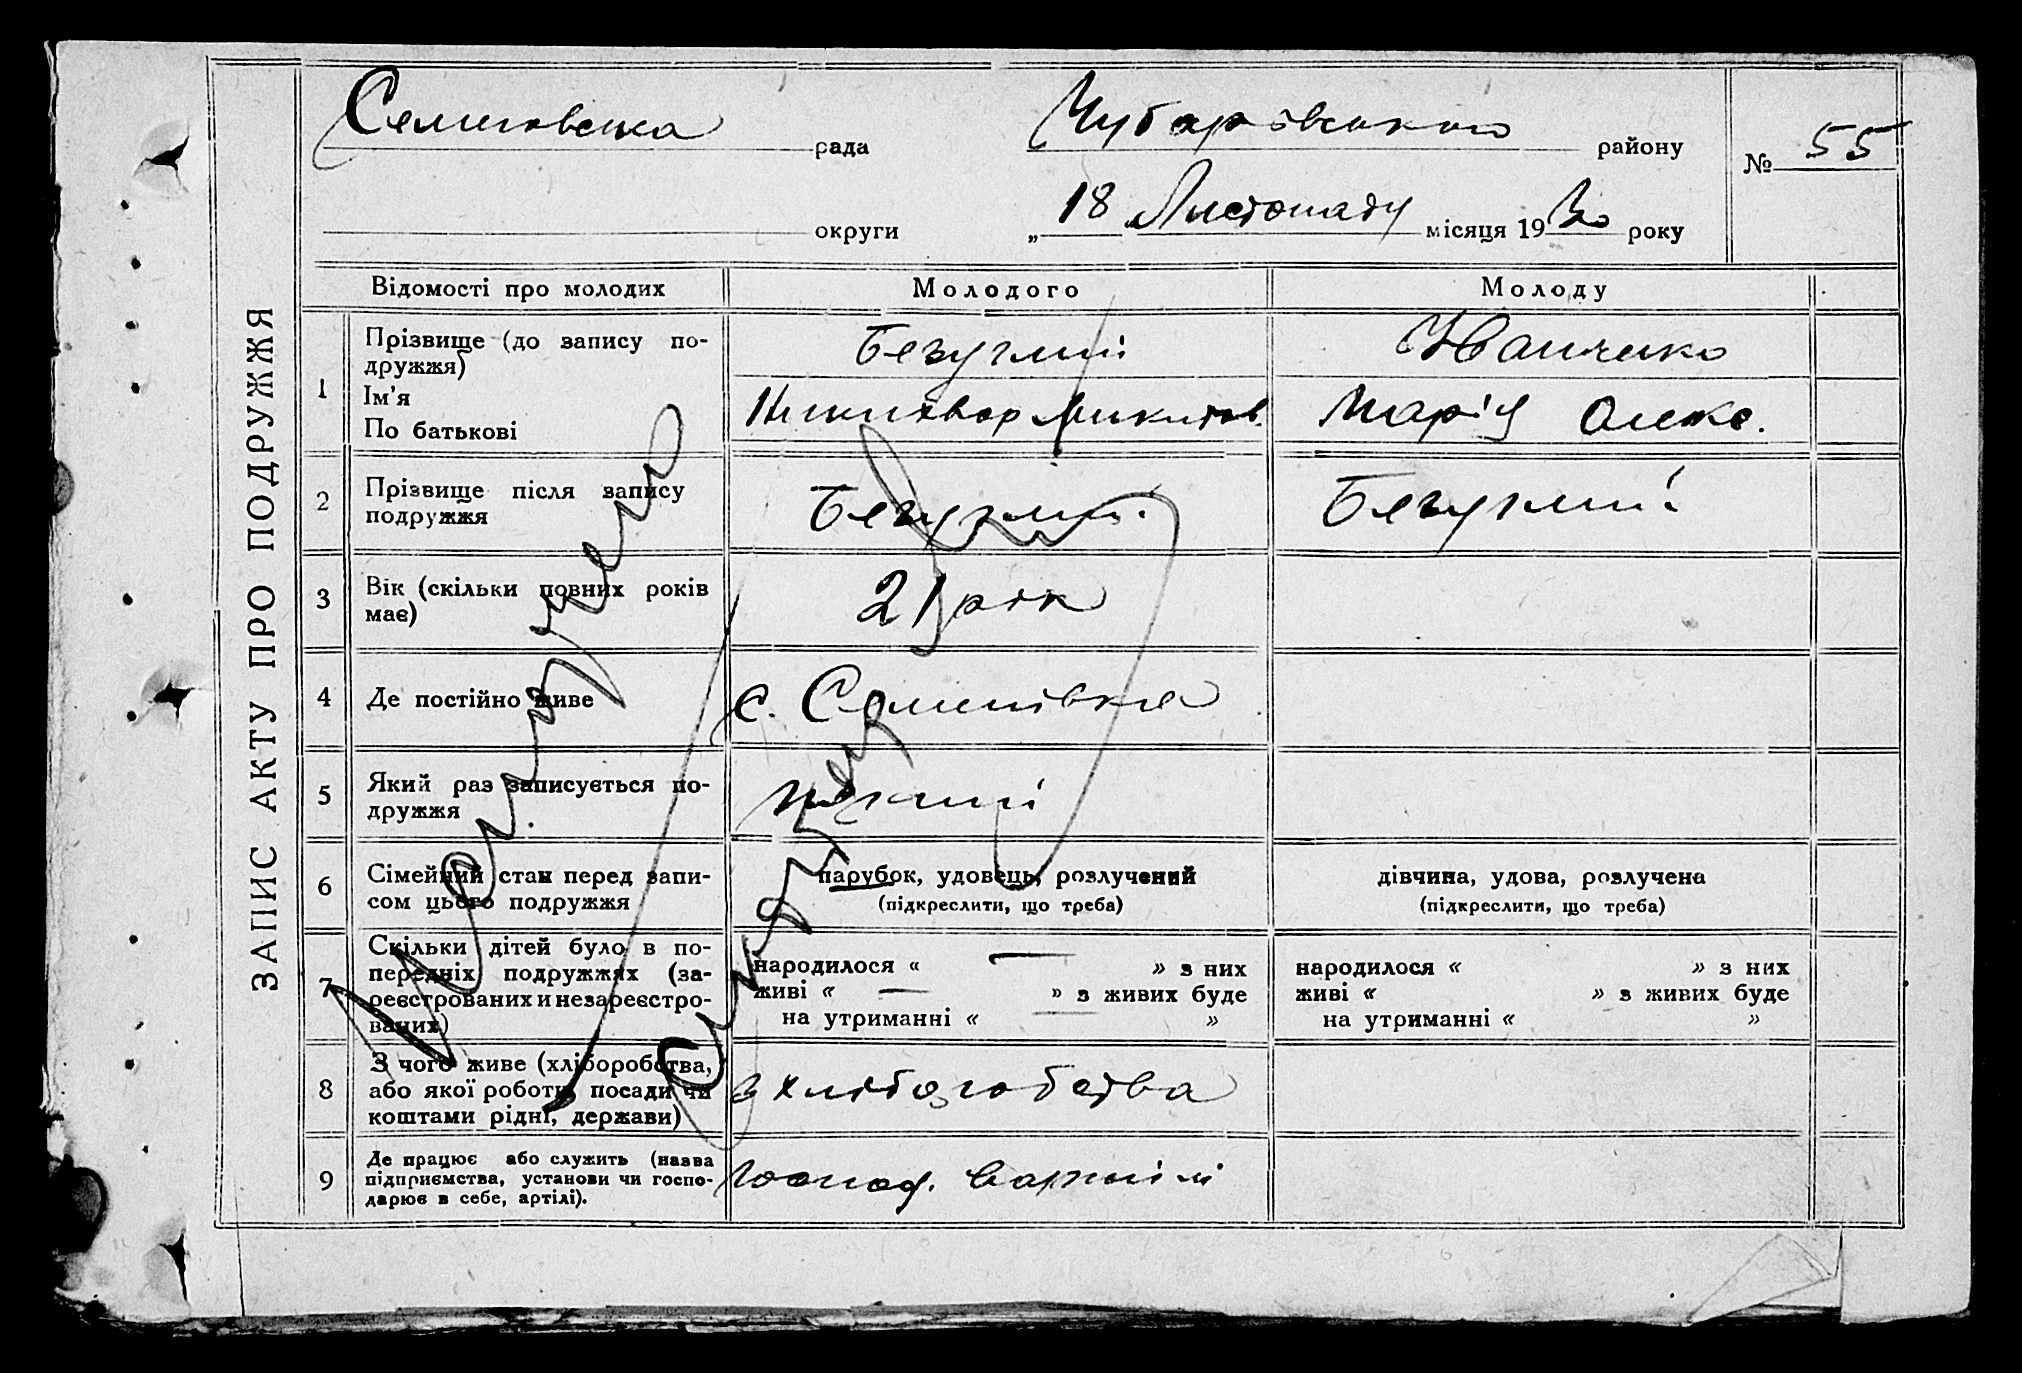 ЗАПИС АКТУ ПРО ПОДРУЖЖЯ
рада Чубарівського району № 55
округи „18 Листопаду місяця 1930 року
Відомості про молодих Молодого Молоду
1 Прізвище (до запису по-
дружжя) Безуглий Иванченко
Ім'я
По батькові Никихвор Микитов. Марія Олекс.
2 Прізвище після запису
подружжя Безуглий Безуглий
3 Вік (скільки повних років
має) 21 рік
4 Де постійно живе с. Семенівка
5 Який раз записується по-
дружжя перший
6 Сімейний стан перед запи-
сом цього подружжя парубок, удовець, розлучений
(підкреслити, що треба) дівчина, удова, розлучена
(підкреслити, що треба)
7 Скільки дітей було в по-
передніх подружжях (за-
реєстрованих и незареєстро-
ваних) народилося « — » з них
живі « — » з живих буде
на утриманні « — »
народилося « » з них
живі « » з живих буде
на утриманні « »
8 З чого живе (хліборобства,
або якої роботи, посади чи
коштами рідні, держави) з хліборобства
9 Де працює або служить (назва
підприємства, установи чи госпо-
дарює в себе, артілі).